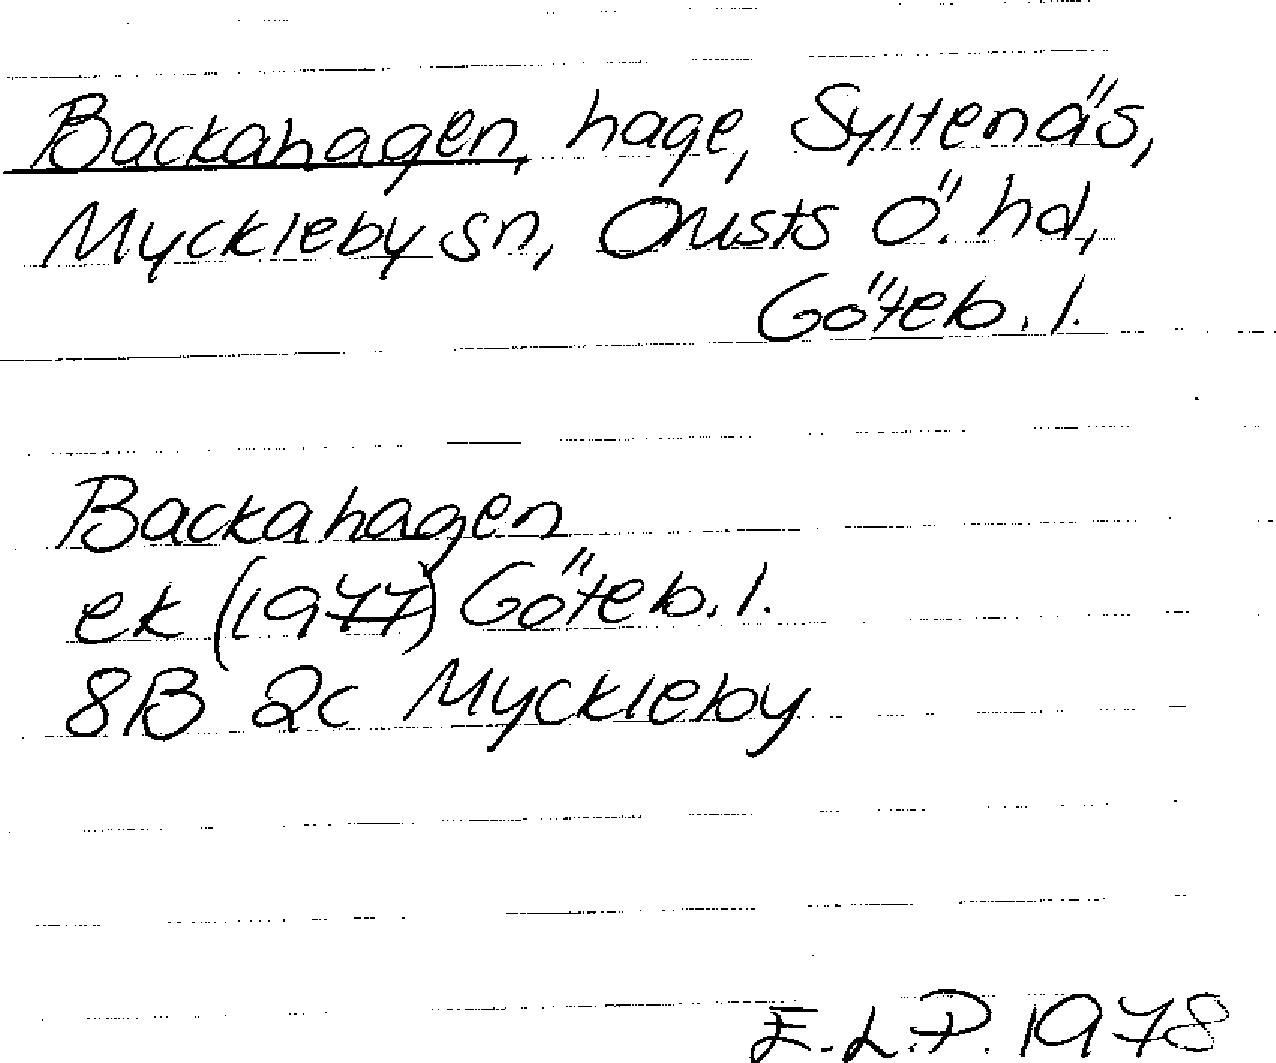 Backahagen, hage, Syltenäs,
Myckleby sn, Orusts Ö. hd,
Göteb. l.
Backahagen
ek (1977) Göteb. l.
8B 2c Myckleby
E.L.P. 1978